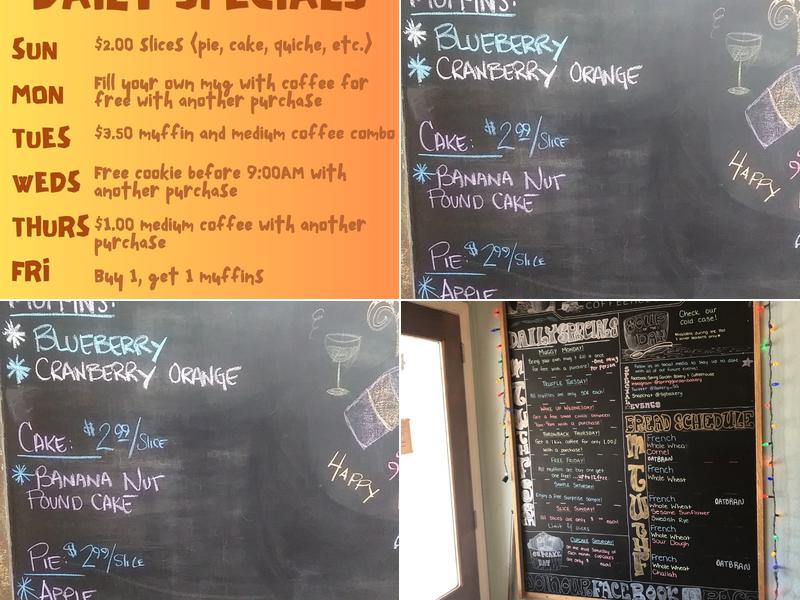 DAILY SPECIALS
SUN $2.00 slices (pie, cake, quiche, etc.)
MON Fill your own mug with coffee for
free with another purchase
TUES $3.50 muffin and medium coffee combo
WEDS Free cookie before 9:00AM with
another purchase
THURS $1.00 medium coffee with another
purchase
FRI Buy 1, get 1 muffins
MUFFINS:
BLUEBERRY
CRANBERRY ORANGE
CAKE: $2.99/SLICE
BANANA NUT
POUND CAKE
PIE: $2.99/SLICE
APPLE
HAPPY
MUFFINS:
BLUEBERRY
CRANBERRY ORANGE
CAKE: $2.99/SLICE
BANANA NUT
POUND CAKE
PIE: $2.99/SLICE
APPLE
HAPPY
DAILY SPECIALS
MUGGY MONDAY!
Bring your own mug & fill it once
for free with a purchase!
-One mug
Per Person
TRUFFLE TUESDAY!
All truffles are only 50¢ each!
WAKE UP WEDNESDAY!
Get a free small coffee between
7am-9am with a purchase!
THROWBACK THURSDAY!
Get a coffee for only 1.00/
with a purchase!
FREE FRIDAY!
All muffins are buy one get
one free!
SAMPLE SATURDAY!
Enjoy a free surprise sample!
SLICE SUNDAY!
All slices are only $ each!
Limit 4 slices
CUPCAKE DAY
CUPCAKE SATURDAY!
on the third Saturday of
each month, cupcakes
are only $ each!
Check our
cold case!
EVENTS
BREAD SCHEDULE
M
French
Whole Wheat
Cornel
OATBRAN
T
French
Whole Wheat
W
French
Whole Wheat
Sesame Sunflower
Swedish Rye
OATBRAN
TH
French
Whole Wheat
Sour Dough
F
French
Whole Wheat
Challah
OATBRAN
JOIN OUR FACEBOOK PAGE